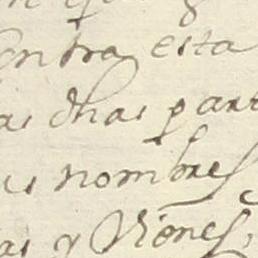 entra esta
as dhas part
us nombres
as y Viones,